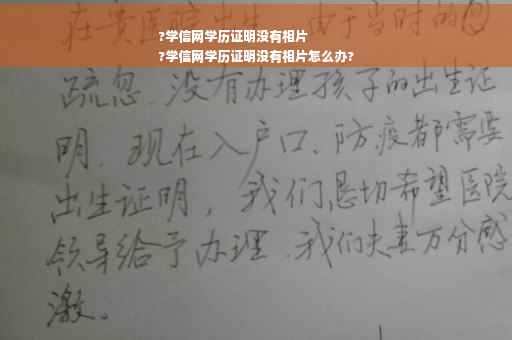 在贵医院出生 由于当时的
?学信网学历证明没有相片
?学信网学历证明没有相片怎么办?
疏忽.没有办理孩子的出生证
明.现在入户口、防疫都需要
出生证明，我们恳切希望医院
领导给予办理.我们夫妻万分感
激。